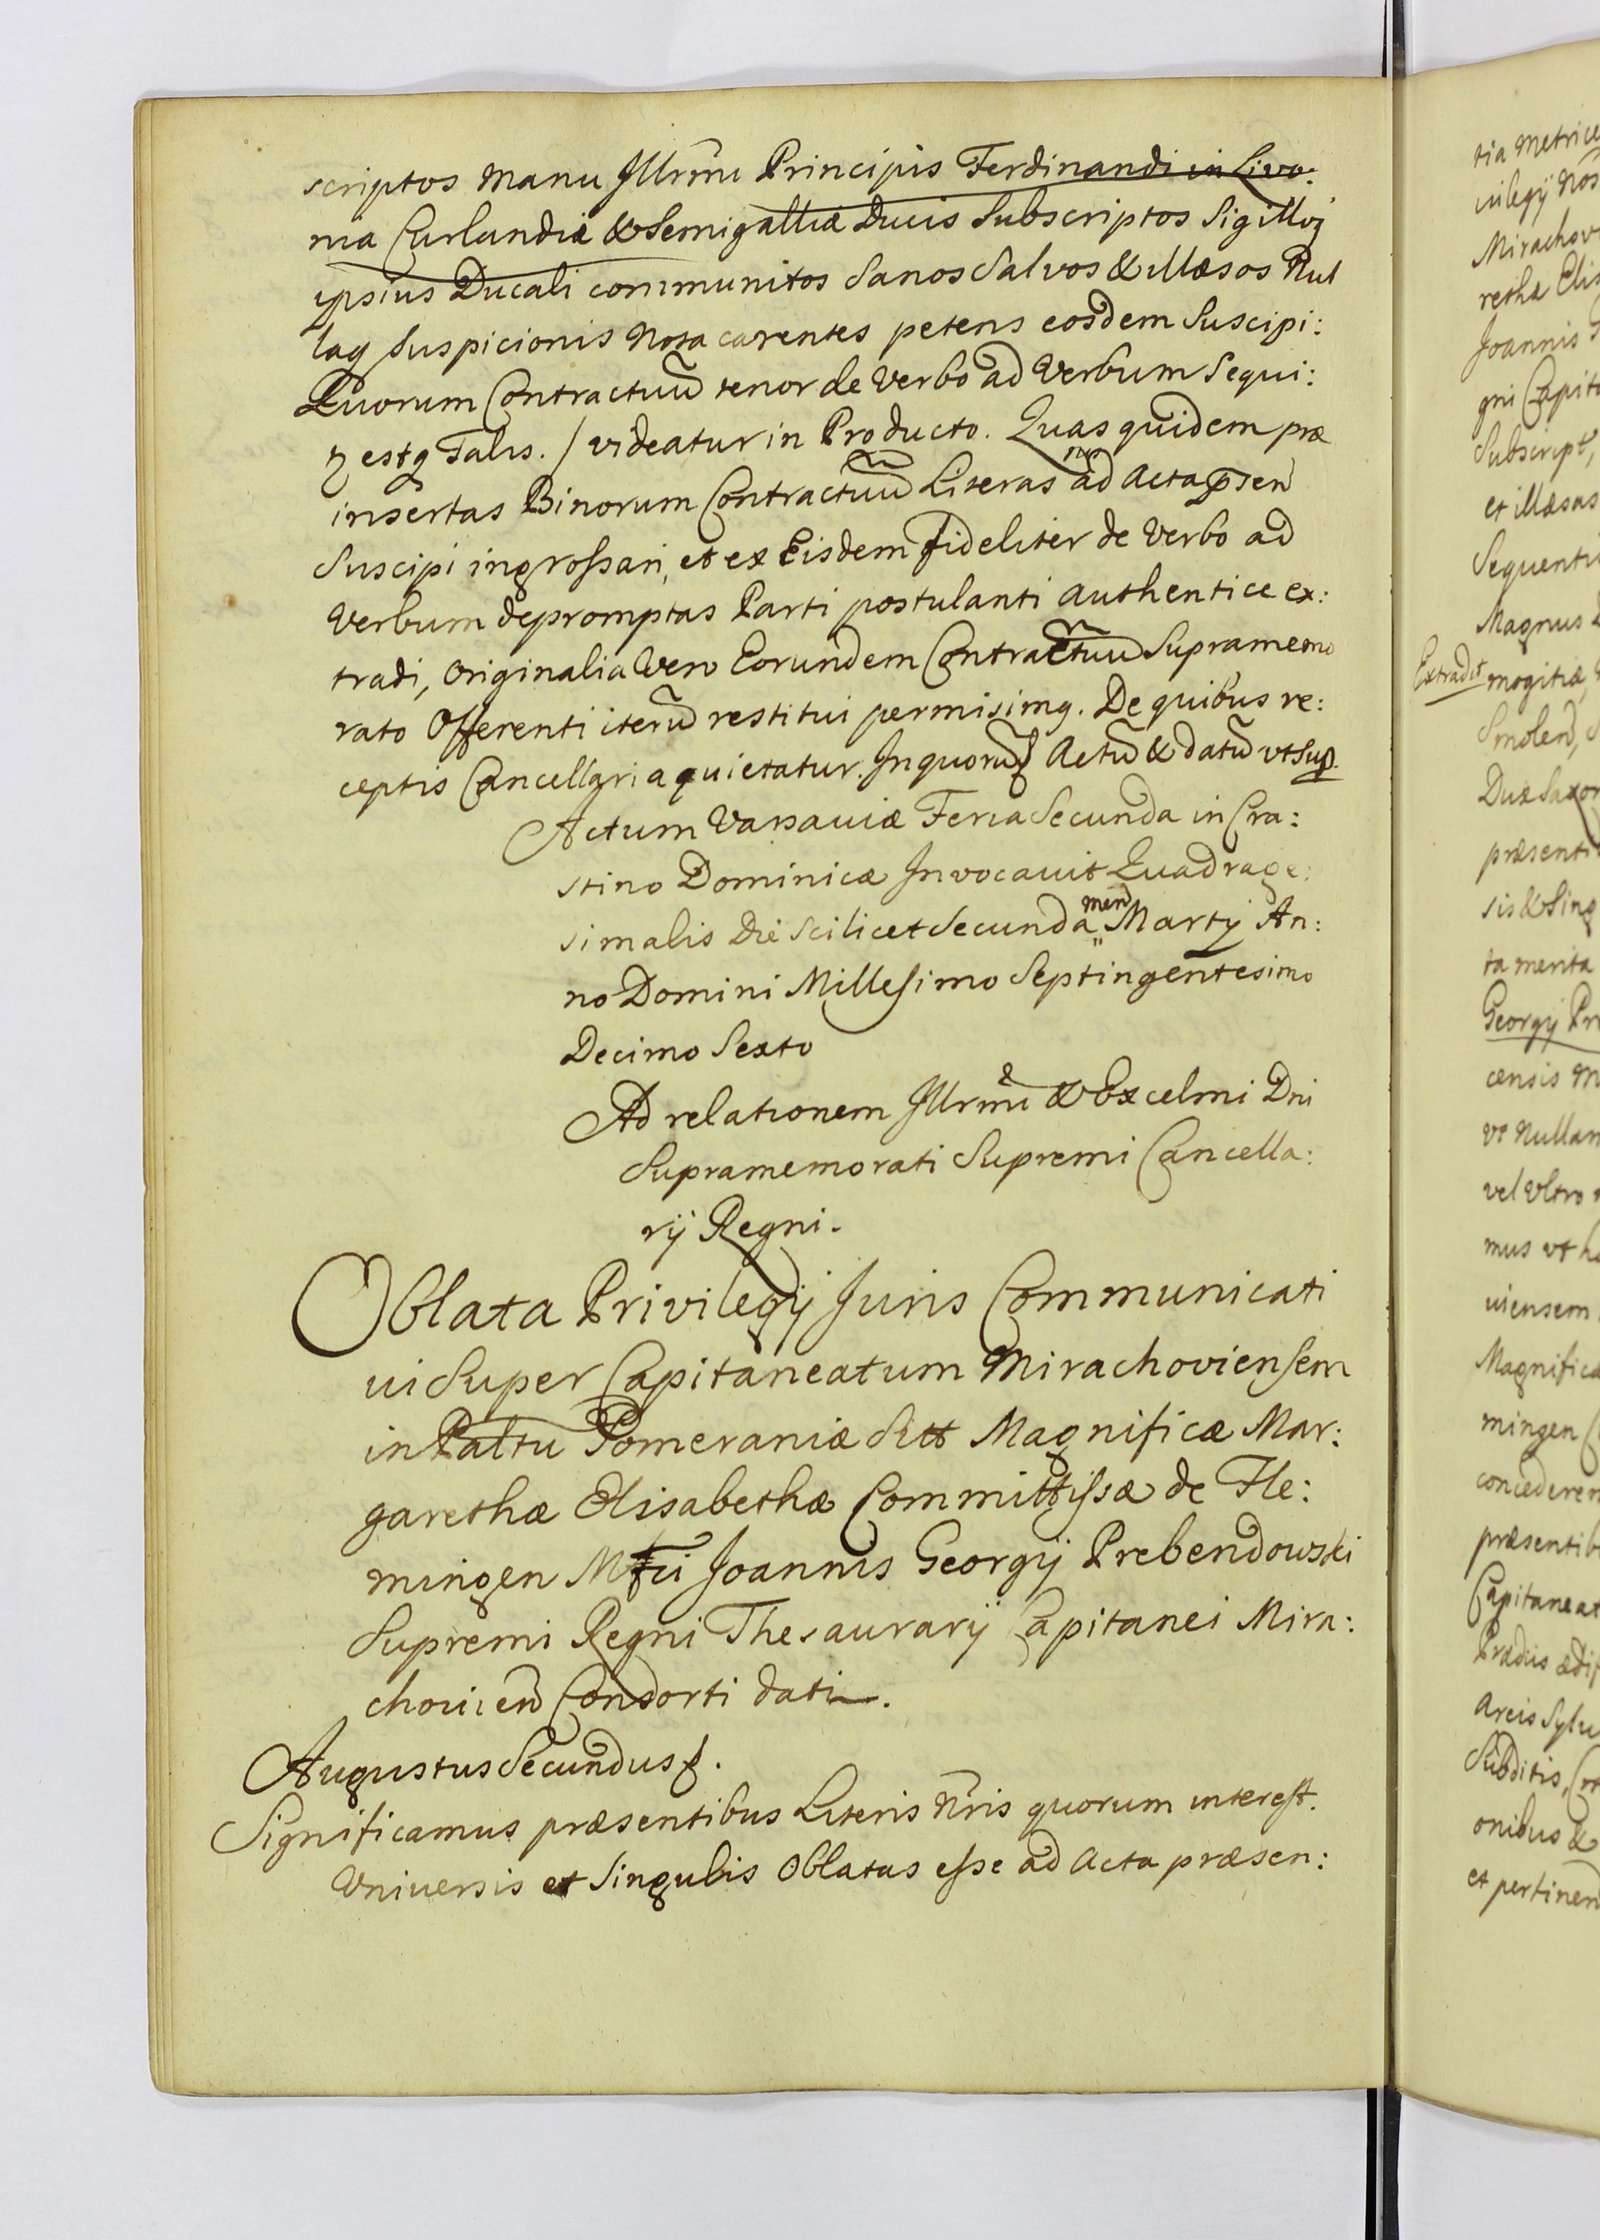 scriptos manu Illrmi Principis Ferdinandi in Livo:
nia Curlandiæ & Semigalliæ Ducis Subscriptos Sigilloq
ipsius Ducali communitos Sanos Salvos & illæsos Nul
laq suspicionis Nota carentes petens eosdem Suscipi:
Quorum Contractuũ tenor de Verbo ad Verbum Sequi:
estq Talis. / videatur in Producto. Quas quidem præ
insertas Binorum Contractuũ Literas ad Acta
Suscipi ingrossari, et ex Eisdem fideliter de Verbo ad
Verbum depromptas Parti postulanti authentice ex:
tradi, Originalia Vero Eorundem Contractuũ Supramemo
rato Offerenti iterũ restitui permisimq. De quibus re:
ceptis Cancellaria quietatur. In quorũ Actũ & datũ ut Sup.
Actum Varsaviæ Feria Secunda in Cra:
stino Dominicæ Invocavit Quadrage:
simalis Die Scilicet Secunda men Martij An:
no Domini Millesimo Septingentesimo
Decimo Sexto
Ad relationem Illrmi & Excelmi Dni
Supramemorati Supremi Cancella:
rij Regni.
Oblata Privilegij Juris Communicati
vi Super Capitaneatum Mirachoviensem
in Paltu Pomeraniæ Magnificæ Mar:
garethæ Elisabethæ Committissæ de Fle:
mingen Mfci Joannis Georgij Prebendowski
Supremi Regni Thesaurarij Capitanei Mira:
chovien Consorti dati.
Augustus Secundus
Significamus præsentibus Literis Nris quorum interest.
Universis et Singulis Oblatas esse ad Acta præsen:
tia Metrice
vilegij Nos
Mirachov
rethæ Elis
Joannis
gni Capit
Subscript,
et illæsas
Sequenti
Magnus
Extradit
mogitiæ,
Smolen,
Dux Saxon
præsenti
sis & Sing
ta merita
Georgij Pr
censis
Vt Nullam
vel Ultro
mus ut h
viensem
Magnifica
mingen
concederem
præsentib
Capitaneat
Prædiis ædif
areis Sylv
Subditis,
onibus &
et pertinen